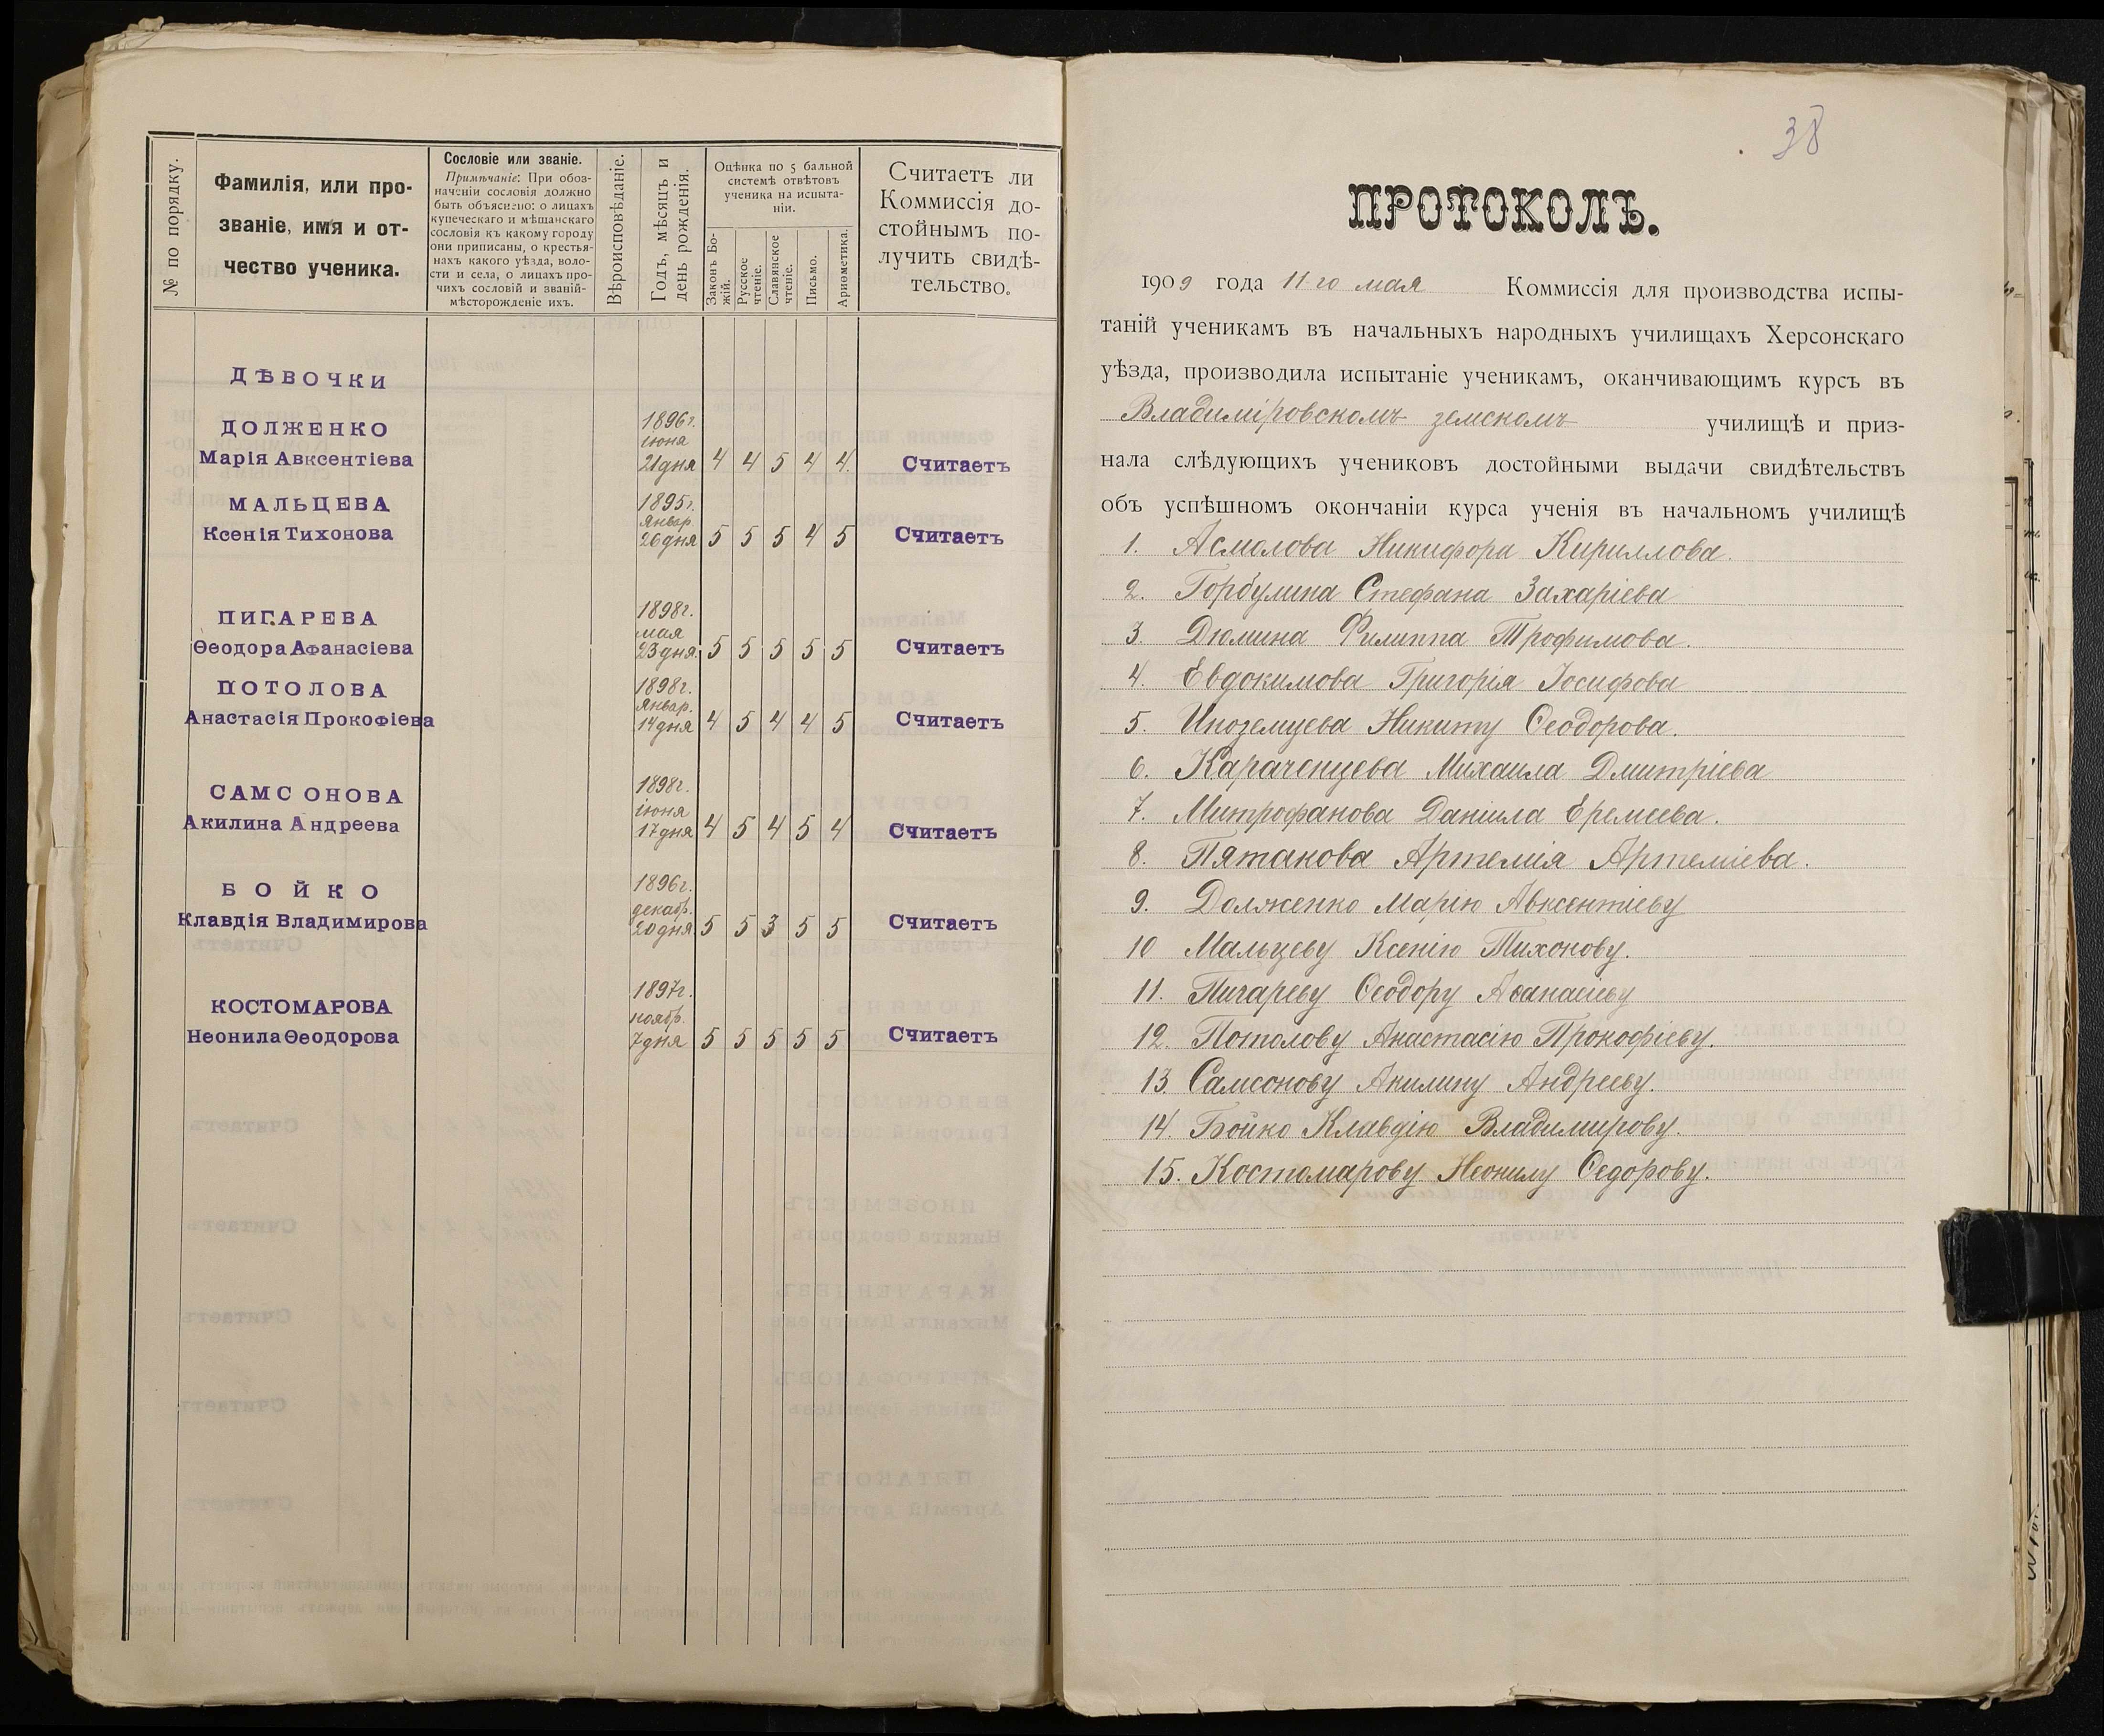 № по порядку.
Фамилія, или про-
званіе, имя и от-
чество ученика.
Сословіе или званіе.
Примѣчаніе: При обоз-
наченіи сословія должно
быть объяснено: о лицахъ
купеческаго и мѣщанскаго
сословія къ какому городу
они приписаны, о крестья-
нахъ какого уѣзда, воло-
сти и села, о лицахъ про-
чихъ сословій и званій-
мѣсторожденіе ихъ.
Вѣроисповѣданіе.
Годъ, мѣсяцъ и
день рожденія.
Оцѣнка по 5 бальной
системѣ отвѣтовъ
ученика на испыта-
ніи.
Законъ Бо-
жій.
Русское
чтеніе.
Славянское
чтеніе.
Письмо.
Ариѳметика.
Считаетъ ли
Коммиссія до-
стойнымъ по-
лучить свидѣ-
тельство.
ДѢВОЧКИ
ДОЛЖЕНКО 1896г.
іюня
Марія Авксентіева 21 дня 4 4 5 4 4. Считаетъ
МАЛЬЦЕВА 1895г.
Январ.
Ксенія Тихонова 26 дня 5 5 5 4 5 Считаетъ
ПИГАРЕВА 1898г.
мая
Ѳеодора Афанасіева 23 дня. 5 5 5 5 5 Считаетъ
ПОТОЛОВА 1898г.
Январ.
Анастасія Прокофіева 14 дня 4 5 4 4 5 Считаетъ
САМСОНОВА 1898г.
іюня
Акилина Андреева 17 дня 4 5 4 5 4 Считаетъ
БОЙКО 1896г.
декабр.
Клавдія Владимирова 20 дня 5 5 3 5 5 Считаетъ
КОСТОМАРОВА 1897г.
ноябр.
Неонила Ѳеодорова 7 дня 5 5 5 5 5 Считаетъ
38
ПРОТОКОЛЪ.
1909 года 11-го мая Коммиссія для производства испы-
таній ученикамъ въ начальныхъ народныхъ училищахъ Херсонскаго
уѣзда, производила испытаніе ученикамъ, оканчивающимъ курсъ въ
Владиміровскомъ земскомъ училищѣ и приз-
нала слѣдующихъ учениковъ достойными выдачи свидѣтельствъ
объ успѣшномъ окончаніи курса ученія въ начальномъ училищѣ
1. Асмолова Никифора Кириллова.
2. Горбулина Стефана Захаріева
3. Дюмина Филиппа Трофимова.
4. Евдокимова Григорія Іосифова
5. Иноземцева Никиту Ѳеодорова.
6. Караченцева Михаила Дмитріева
7. Митрофанова Даніила Еремеева.
8. Пятакова Артемія Артеміева.
9. Долженко Марію Авксентіеву
10 Мальцеву Ксенію Тихонову.
11. Пигареву Ѳеодору Аѳанасіеву
12. Потолову Анастасію Прокофіеву.
13. Самсонову Акилину Андрееву.
14. Бойко Клавдію Владимирову.
15. Костомарову Неонилу Ѳедорову.